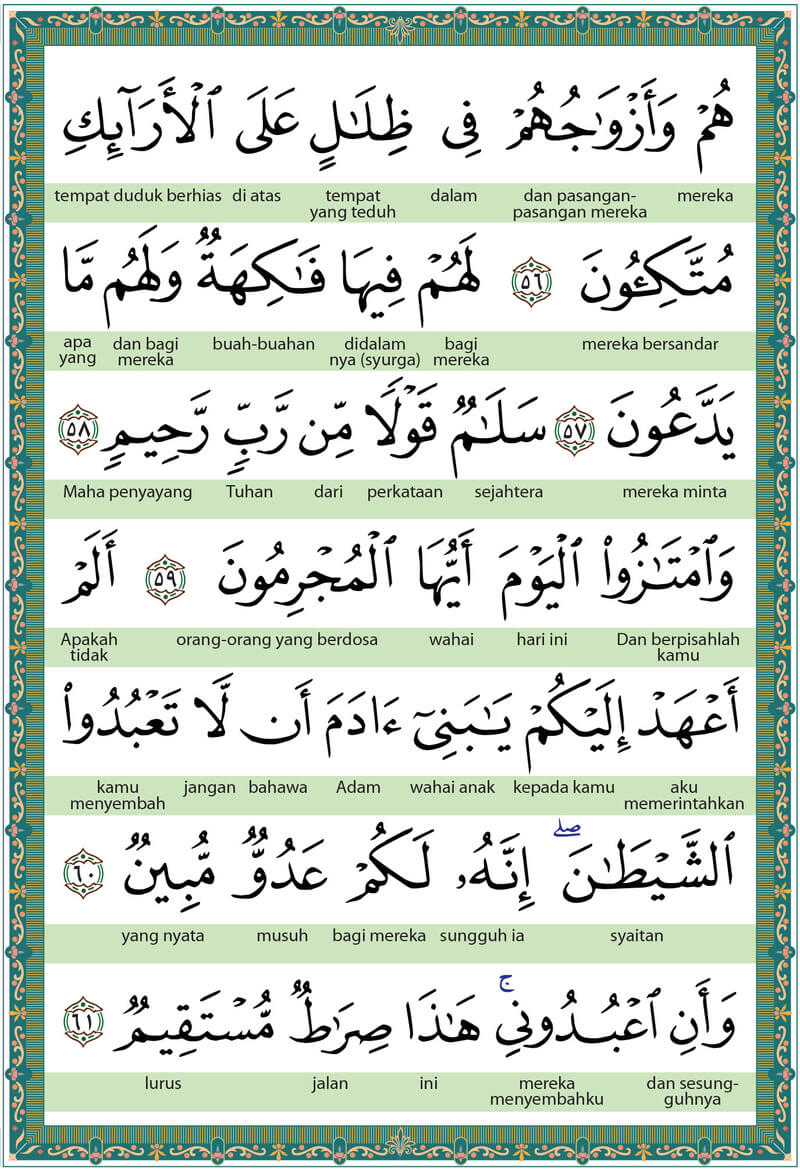 هُمْ وَأَزْوَٰجُهُمْ فِى ظِلَـٰلٍ عَلَى ٱلْأَرَآئِكِ
mereka dan pasangan-pasangan mereka dalam tempat yang teduh di atas tempat duduk berhias
مُتَّكِـُٔونَ ٥٦ لَهُمْ فِيهَا فَـٰكِهَةٌ وَلَهُم مَّا
mereka bersandar bagi mereka didalam nya (syurga) buah-buahan dan bagi mereka apa yang
يَدَّعُونَ ٥٧ سَلَـٰمٌ قَوْلًا مِّن رَّبٍّ رَّحِيمٍ ٥٨
mereka minta sejahtera perkataan dari Tuhan Maha penyayang
وَٱمْتَـٰزُوا۟ ٱلْيَوْمَ أَيُّهَا ٱلْمُجْرِمُونَ ٥٩ أَلَمْ
Dan berpisahlah kamu hari ini wahai orang-orang yang berdosa Apakah tidak
أَعْهَدْ إِلَيْكُمْ يَـٰبَنِىٓ ءَادَمَ أَن لَّا تَعْبُدُوا۟
aku memerintahkan kepada kamu wahai anak Adam bahawa jangan kamu menyembah
ٱلشَّيْطَـٰنَ ۖ إِنَّهُۥ لَكُمْ عَدُوٌّ مُّبِينٌ ٦٠
syaitan sungguh ia bagi mereka musuh yang nyata
وَأَنِ ٱعْبُدُونِى ۚ هَـٰذَا صِرَٰطٌ مُّسْتَقِيمٌ ٦١
dan sesung-guhnya mereka menyembahku ini jalan lurus